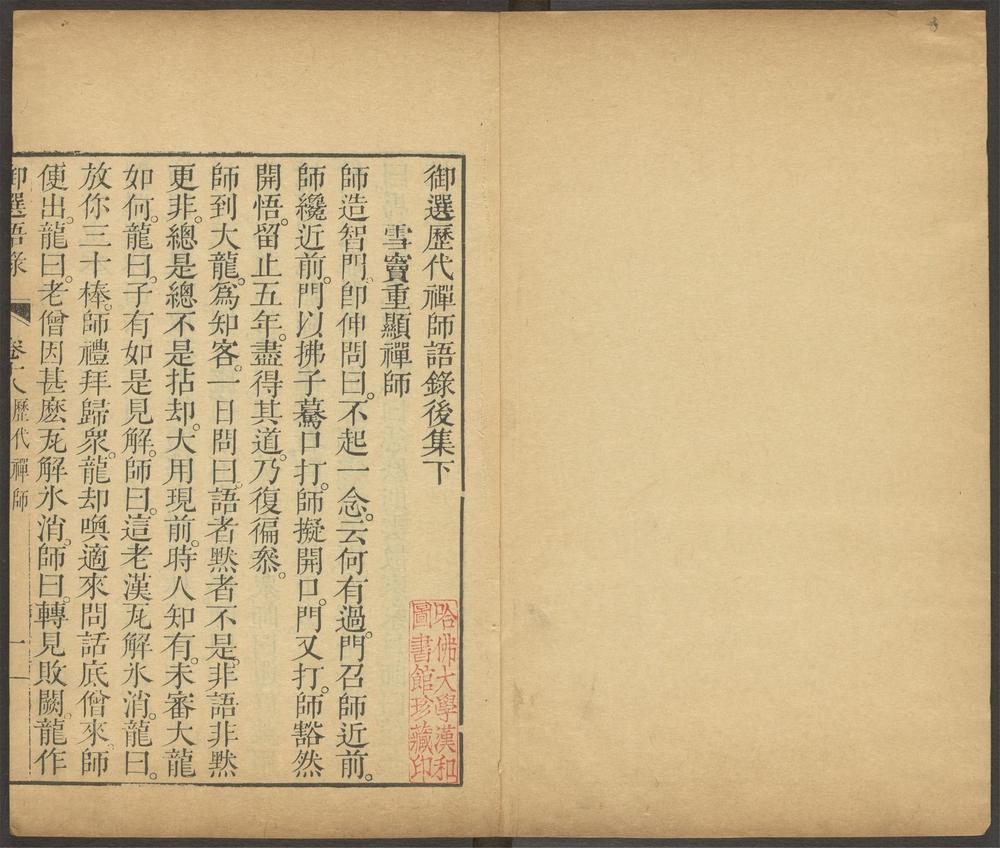 御選歷代禪師語錄後集下
雪竇重顯禪師
師造智門。卽伸問曰。不起一念。云何有過。門召師近前。
師纔近前。門以拂子驀口打。師擬開口。門又打。師豁然
開悟。留止五年。盡得其道。乃復徧叅。
師到大龍。爲知客。一日問曰。語者默者不是。非語非默
更非。總是總不是拈却。大用現前。時人知有。未審大龍
如何。龍曰。子有如是見解。師曰。這老漢瓦解氷消。龍曰。
放你三十棒。師禮拜歸衆。龍却喚適來問話底僧來。師
便出。龍曰。老僧因甚麽瓦解氷消。師曰。轉見敗闕。龍作
御選語錄 歷代禪師 一
哈佛大學漢和
圖書館珍藏印